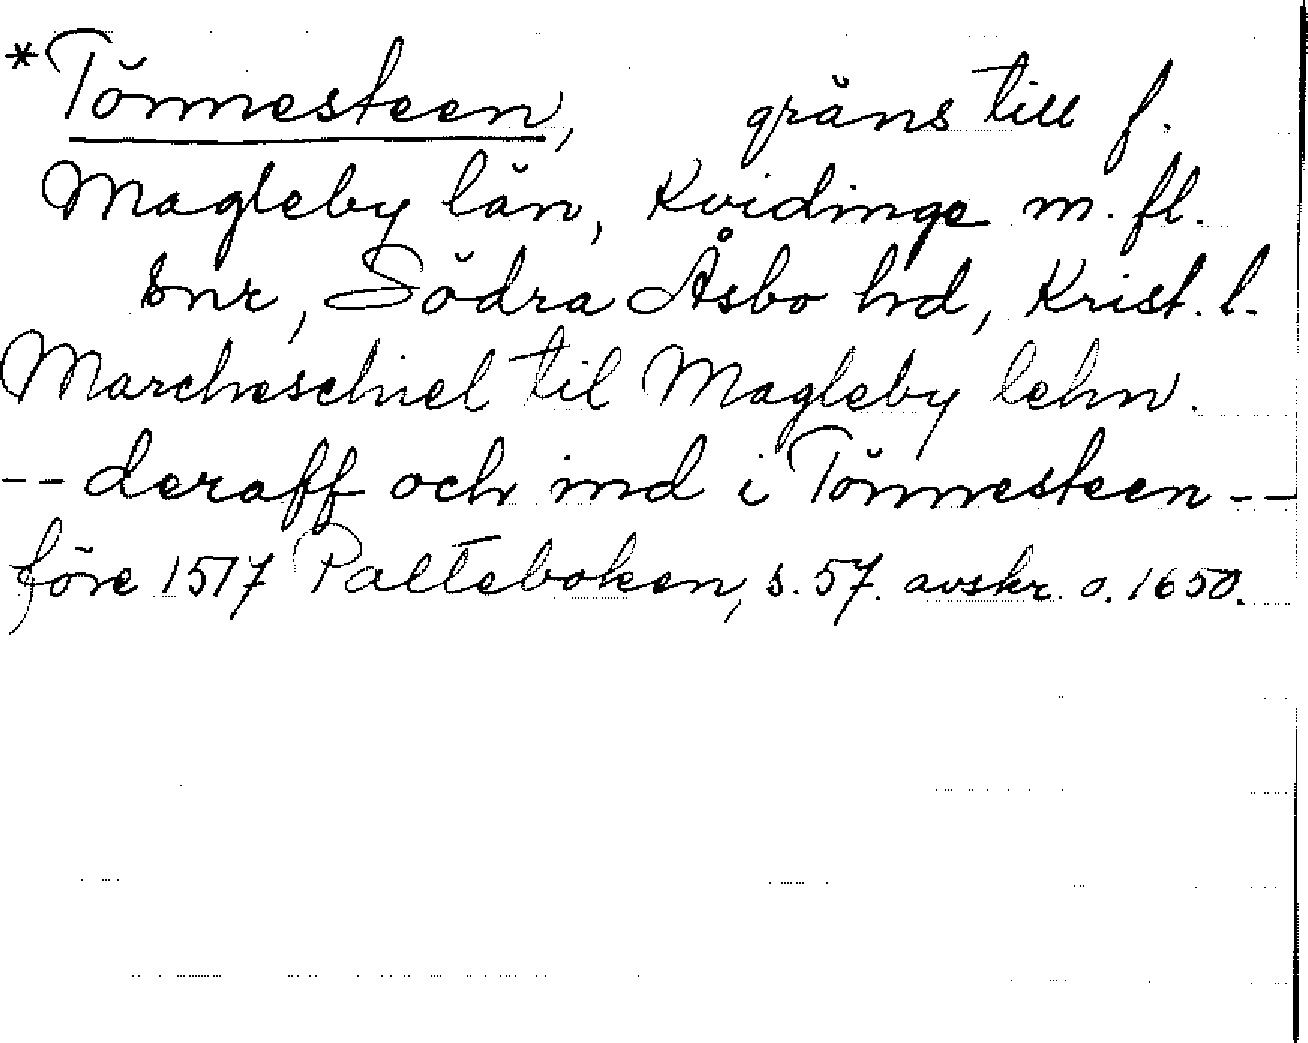 *Tönnesteen, gräns till f.
Magleby län, Kvidinge m. fl.
snr, Södra Åsbo hd, Krist. l.
Marcheschiel til Magleby lehn.
-- deraff och ind i Tönnesteen --
före 1517 Palteboken, s. 57. avskr. o. 1650.